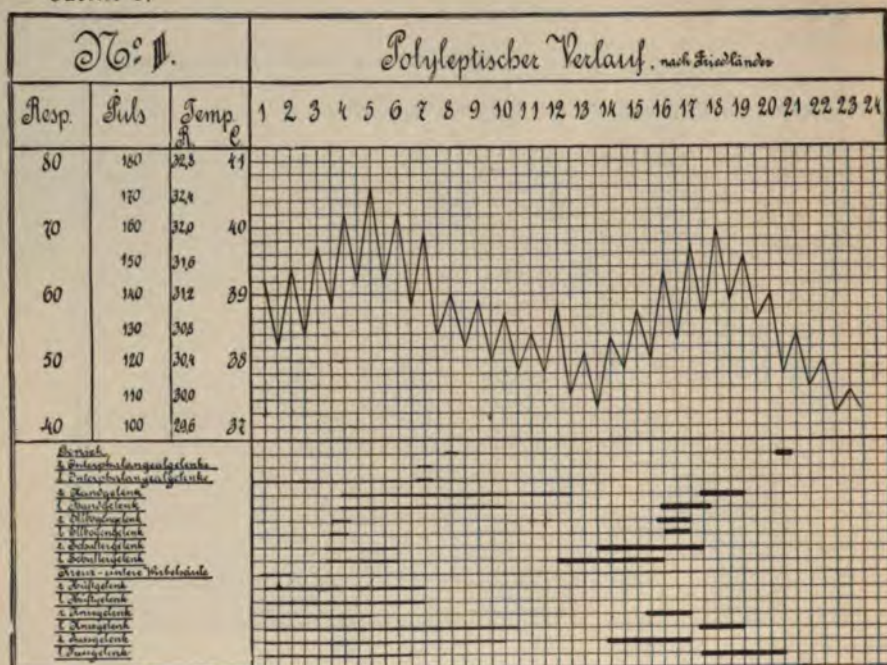 No: III.
Polyleptischer Verlauf. nach Friedländer
Resp. Puls Temp.
R. C
1 2 3 4 5 6 7 8 9 10 11 12 13 14 15 16 17 18 19 20 21 22 23 24
80 180 32,8 41
170 32,4
70 160 32,0 40
150 31,6
60 140 31,2 39
130 30,8
50 120 30,4 38
110 30,0
40 100 29,6 37
Genick
r. Interphalangealgelenke
l. Interphalangealgelenke
r. Handgelenk
l. Handgelenk
r. Ellbogengelenk
l. Ellbogengelenk
r. Schultergelenk
l. Schultergelenk
Kreuz-untere Wirbelsäule
r. Hüftgelenk
l. Hüftgelenk
r. Kniegelenk
l. Kniegelenk
r. Fussgelenk
l. Fussgelenk